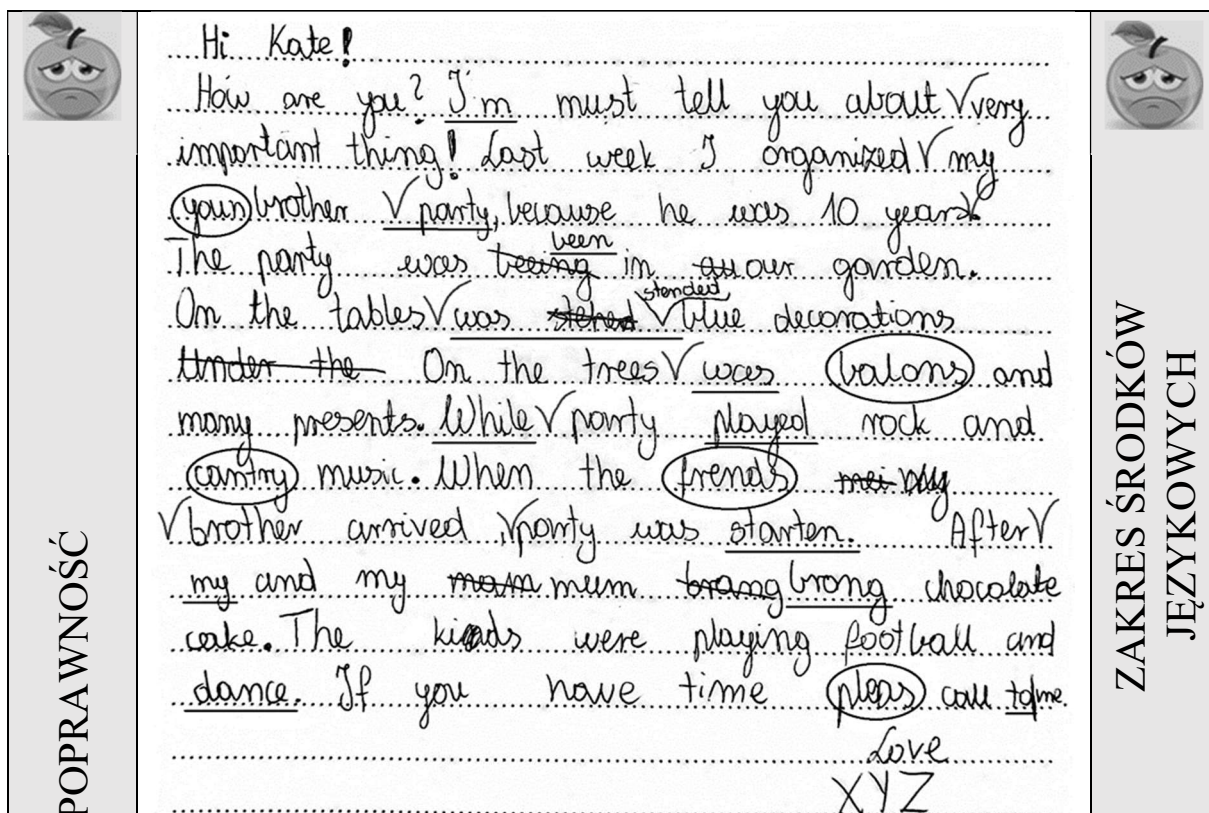 POPRAWNOŚĆ
Hi Kate!
How are you? I'm must tell you about very
important thing! Last week I organized my
youn brother party, because he was 10 years.
The party was been in our garden.
On the tables was stended blue decorations
Under the On the trees was balons and
many presents. While party played rock and
cantry music. When the frends my
brother arrived, party was starten. After
my and my mum brong chocolate
cake. The kids were playing football and
dance. If you have time pleas call to me.
Love
XYZ
ZAKRES ŚRODKÓW
JĘZYKOWYCH